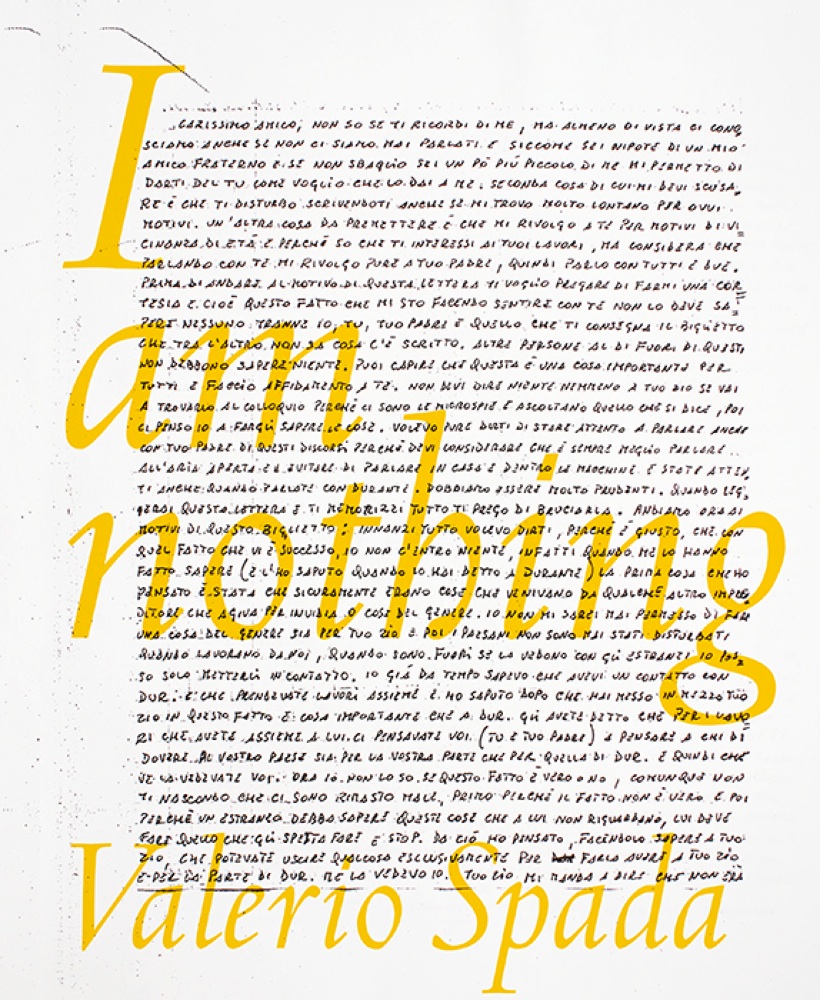 I
am
nothing
Valerio Spada
CARISSIMO AMICO, NON SO SE TI RICORDI DI ME, MA ALMENO DI VISTA CI CONO
SCIAMO ANCHE SE NON CI SIAMO MAI PARLATI. E SICCOME SEI NIPOTE DI UN MIO
AMICO FRATERNO E SE NON SBAGLIO SEI UN PÒ PIÙ PICCOLO DI ME MI PERMETTO DI
DARTI DEL TU COME VOGLIO CHE LO DAI A ME. SECONDA COSA DI CUI MI DEVI SCUSA
RE È CHE TI DISTURBO SCRIVENDOTI ANCHE SE MI TROVO MOLTO LONTANO PER OVVI
MOTIVI. UN'ALTRA COSA DA PREMETTERE È CHE MI RIVOLGO A TE PER MOTIVI DI VI
CINANZA DI ETÀ E PERCHÉ SO CHE TI INTERESSI AI TUOI LAVORI, MA CONSIDERA CHE
PARLANDO CON TE MI RIVOLGO PURE A TUO PADRE, QUINDI PARLO CON TUTTI E DUE.
PRIMA DI ANDARE AL MOTIVO DI QUESTA LETTERA TI VOGLIO PREGARE DI FARMI UNA COR
TESIA E CIOÈ QUESTO FATTO CHE MI STO FACENDO SENTIRE CON TE NON LO DEVE SA
PERE NESSUNO TRANNE IO, TU, TUO PADRE E QUELLO CHE TI CONSEGNA IL BIGLIETTO
CHE TRA L'ALTRO NON SA COSA C'È SCRITTO. ALTRE PERSONE AL DI FUORI DI QUESTI
NON DEBBONO SAPERE NIENTE. PUOI CAPIRE CHE QUESTA È UNA COSA IMPORTANTE PER
TUTTI E FACCIO AFFIDAMENTO A TE. NON DEVI DIRE NIENTE NEMMENO A TUO ZIO SE VAI
A TROVARLO AL COLLOQUIO PERCHÉ CI SONO LE MICROSPIE E ASCOLTANO QUELLO CHE SI DICE, POI
CI PENSO IO A FARGLI SAPERE LE COSE. VOLEVO PURE DIRTI DI STARE ATTENTO A PARLARE ANCHE
CON TUO PADRE DI QUESTI DISCORSI PERCHÉ DEVI CONSIDERARE CHE È SEMPRE MEGLIO PARLARE
ALL'ARIA APERTA E A EVITARE DI PARLARE IN CASA E DENTRO LE MACCHINE. E STATE ATTEN
TI ANCHE QUANDO PARLATE CON DURANTE. DOBBIAMO ESSERE MOLTO PRUDENTI. QUANDO LEG
GERAI QUESTA LETTERA E TI MEMORIZZI TUTTO TI PREGO DI BRUCIARLA. ANDIAMO ORA AI
MOTIVI DI QUESTO BIGLIETTO: INNANZI TUTTO VOLEVO DIRTI, PERCHÉ È GIUSTO, CHE CON
QUEL FATTO CHE VI È SUCCESSO, IO NON C'ENTRO NIENTE, INFATTI QUANDO ME LO HANNO
FATTO SAPERE (E L'HO SAPUTO QUANDO LO HAI DETTO A DURANTE) LA PRIMA COSA CHE HO
PENSATO È STATA CHE SICURAMENTE ERANO COSE CHE VENIVANO DA QUALCHE ALTRO IMPREN
DITORE CHE AGIVA PER INVIDIA O COSE DEL GENERE. IO NON MI SAREI MAI PERMESSO DI FAR
UNA COSA DEL GENERE SIA PER TUO ZIO E POI I PAESANI NON SONO MAI STATI DISTURBATI
QUANDO LAVORANO DA NOI, QUANDO SONO FUORI SE LA VEDONO CON GLI ESTRANEI IO POS
SO SOLO METTERLI IN CONTATTO. IO GIÀ DA TEMPO SAPEVO CHE AVEVI UN CONTATTO CON
DUR. E CHE PRENDEVATE LAVORI ASSIEME E HO SAPUTO DOPO CHE HAI MESSO IN MEZZO TUO
ZIO IN QUESTO FATTO E COSA IMPORTANTE CHE A DUR. GLI AVETE DETTO CHE PER I LAVO
RI CHE AVETE ASSIEME A LUI CI PENSAVATE VOI (TU E TUO PADRE) A PENSARE A CHI DI
DOVERE AL VOSTRO PAESE SIA PER LA VOSTRA PARTE CHE PER QUELLA DI DUR. E QUINDI CHE
VE LA VEDEVATE VOI. ORA IO NON LO SO SE QUESTO FATTO È VERO O NO, COMUNQUE NON
TI NASCONDO CHE CI SONO RIMASTO MALE, PRIMO PERCHÉ IL FATTO NON È VERO E POI
PERCHÉ UN ESTRANEO DEBBA SAPERE QUESTE COSE CHE A LUI NON RIGUARDANO, LUI DEVE
FARE QUELLO CHE GLI SPETTA FARE E STOP. DA CIÒ HO PENSATO, FACENDOLO SAPERE A TUO
ZIO, CHE POTEVATE USCIRE QUALCOSA ESCLUSIVAMENTE PER FARLA AVERE A TUO ZIO
E PER LA PARTE DI DUR. ME LA VEDEVO IO. TUO ZIO MI MANDA A DIRE CHE NON ERA